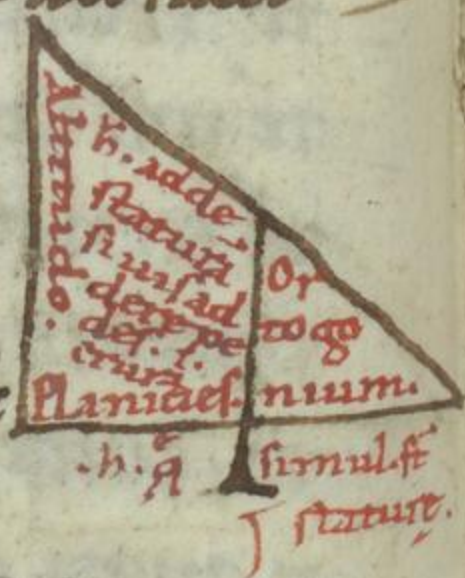 Altitudo.
h̄. adde
statura
si uis ad
dere pe
des. i.
crura
Or
togo
nium.
Planicies.
.h.
simul. st̄
staturę.